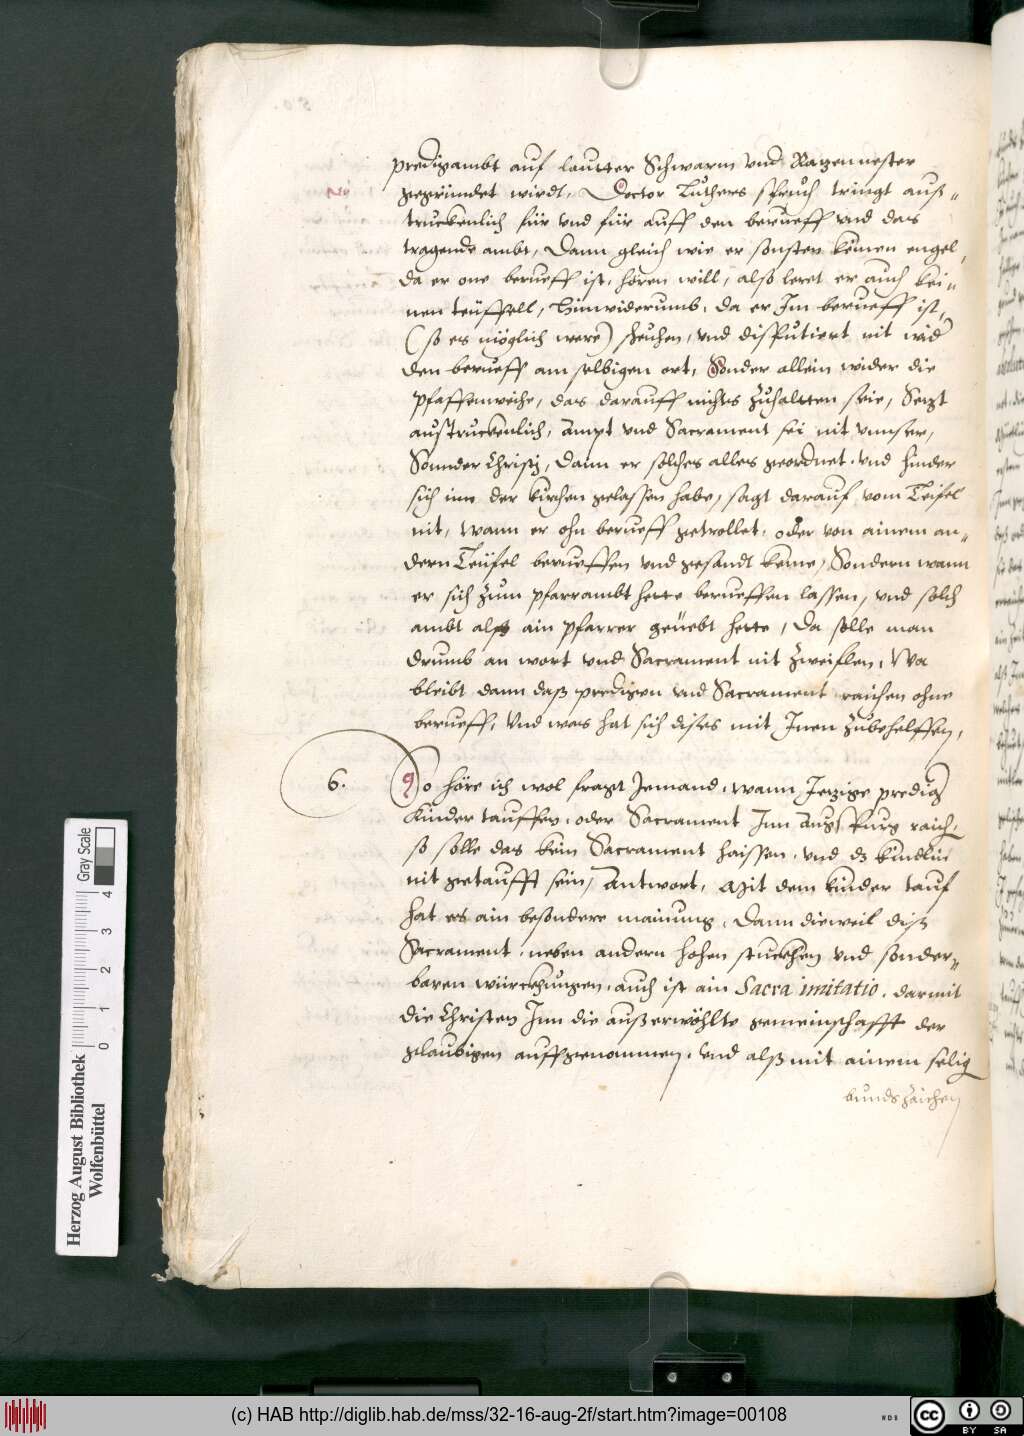 predigambt auf lautter Schwarm vnd Ratzennester
gegründet wirdt, Doctor Luthers spruch tringt auß-
truckenlich für vnd für auff den berueff vnd das
tragende ambt, Dann gleich wie er sonsten keinen engel,
da er one berueff ist, hören will, also leret er auch kei-
nen teüffell, hinwiderumb, da er Im berueff ist,
(so es möglich were) scheuhen, vnd disputiert nit wid
den berueff am selbigen ort, Sonder allein wider die
Pfaffenweihe, das darauff nichts zuhaltten seie, Setzt
austruckenlich, Ampt vnd Sacrament sei nit vnnser,
Sonnder Christj, Dann er solches alles geordnet, vnd hinder
sich inn der kirchen gelassen habe, sagt darauf, vom Teifel
nit, wann er ohn berueff getrollet, oder von ainem an-
dern Teüfel berueffen vnd gesandt keme, Sondern wann
er sich zum pfarrambt hette berueffen lassen, vnd solch
ambt alß ain pfarrer geüebt hette, Da solle man
drumb an wort vnd Sacrament nit zweiflen, Wa
bleibt dann daß predigen vnd Sacrament raichen ohne
berueff, Vnd was hat sich dises mit Inen zubehelffen,
6. So höre ich wol fragt Jemand, wann Jetzige predig
Kinder tauffen, oder Sacrament Inn Augspurg raich,
so solle das kein Sacrament haissen, vnd dz kindlin
nit getaufft sein, Antwort, Mit dem kinder tauf
hat es ain besondere mainung, Dann dieweil diß
Sacrament, neben andern hohen stuckhen vnd sonder-
baren würckhungen, auch ist ain Sacra imitatio, darmit
die Christen Inn die außerwöhlte gemeinschafft der
glaubigen auffgenommen, vnd alß mit ainem selig
bundszaichen
Herzog August Bibliothek
Wolfenbüttel
0 1 2 3 4
Gray Scale
(c) HAB http://diglib.hab.de/mss/32-16-aug-2f/start.htm?image=00108
WDB
cc BY SA